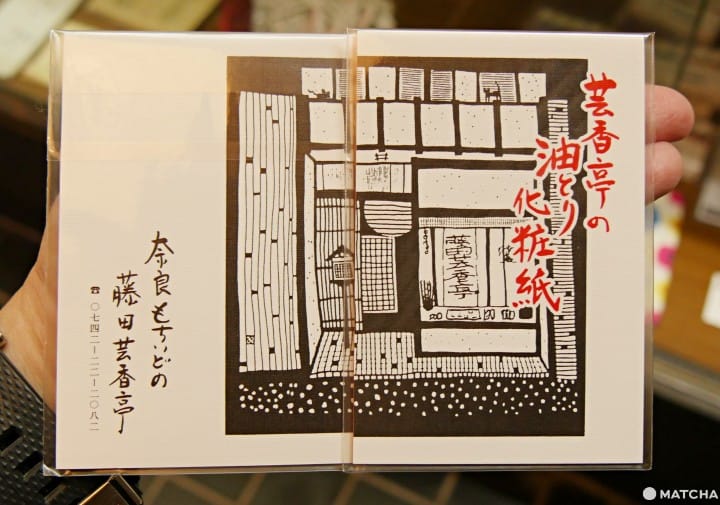 芸香亭の
油とり
化粧紙
藤田芸香亭
奈良もちいどの
藤田芸香亭
☎〇七四二-二二-二〇八二
MATCHA